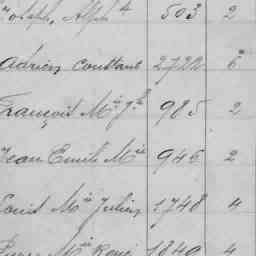 Alph 503 2
Adrien Constant 2722 6
François M.ie J.h 985 2
Jean Emile M.ie 946 2
Louis M.ie Julien 1748 4
M.ie René 1840 4